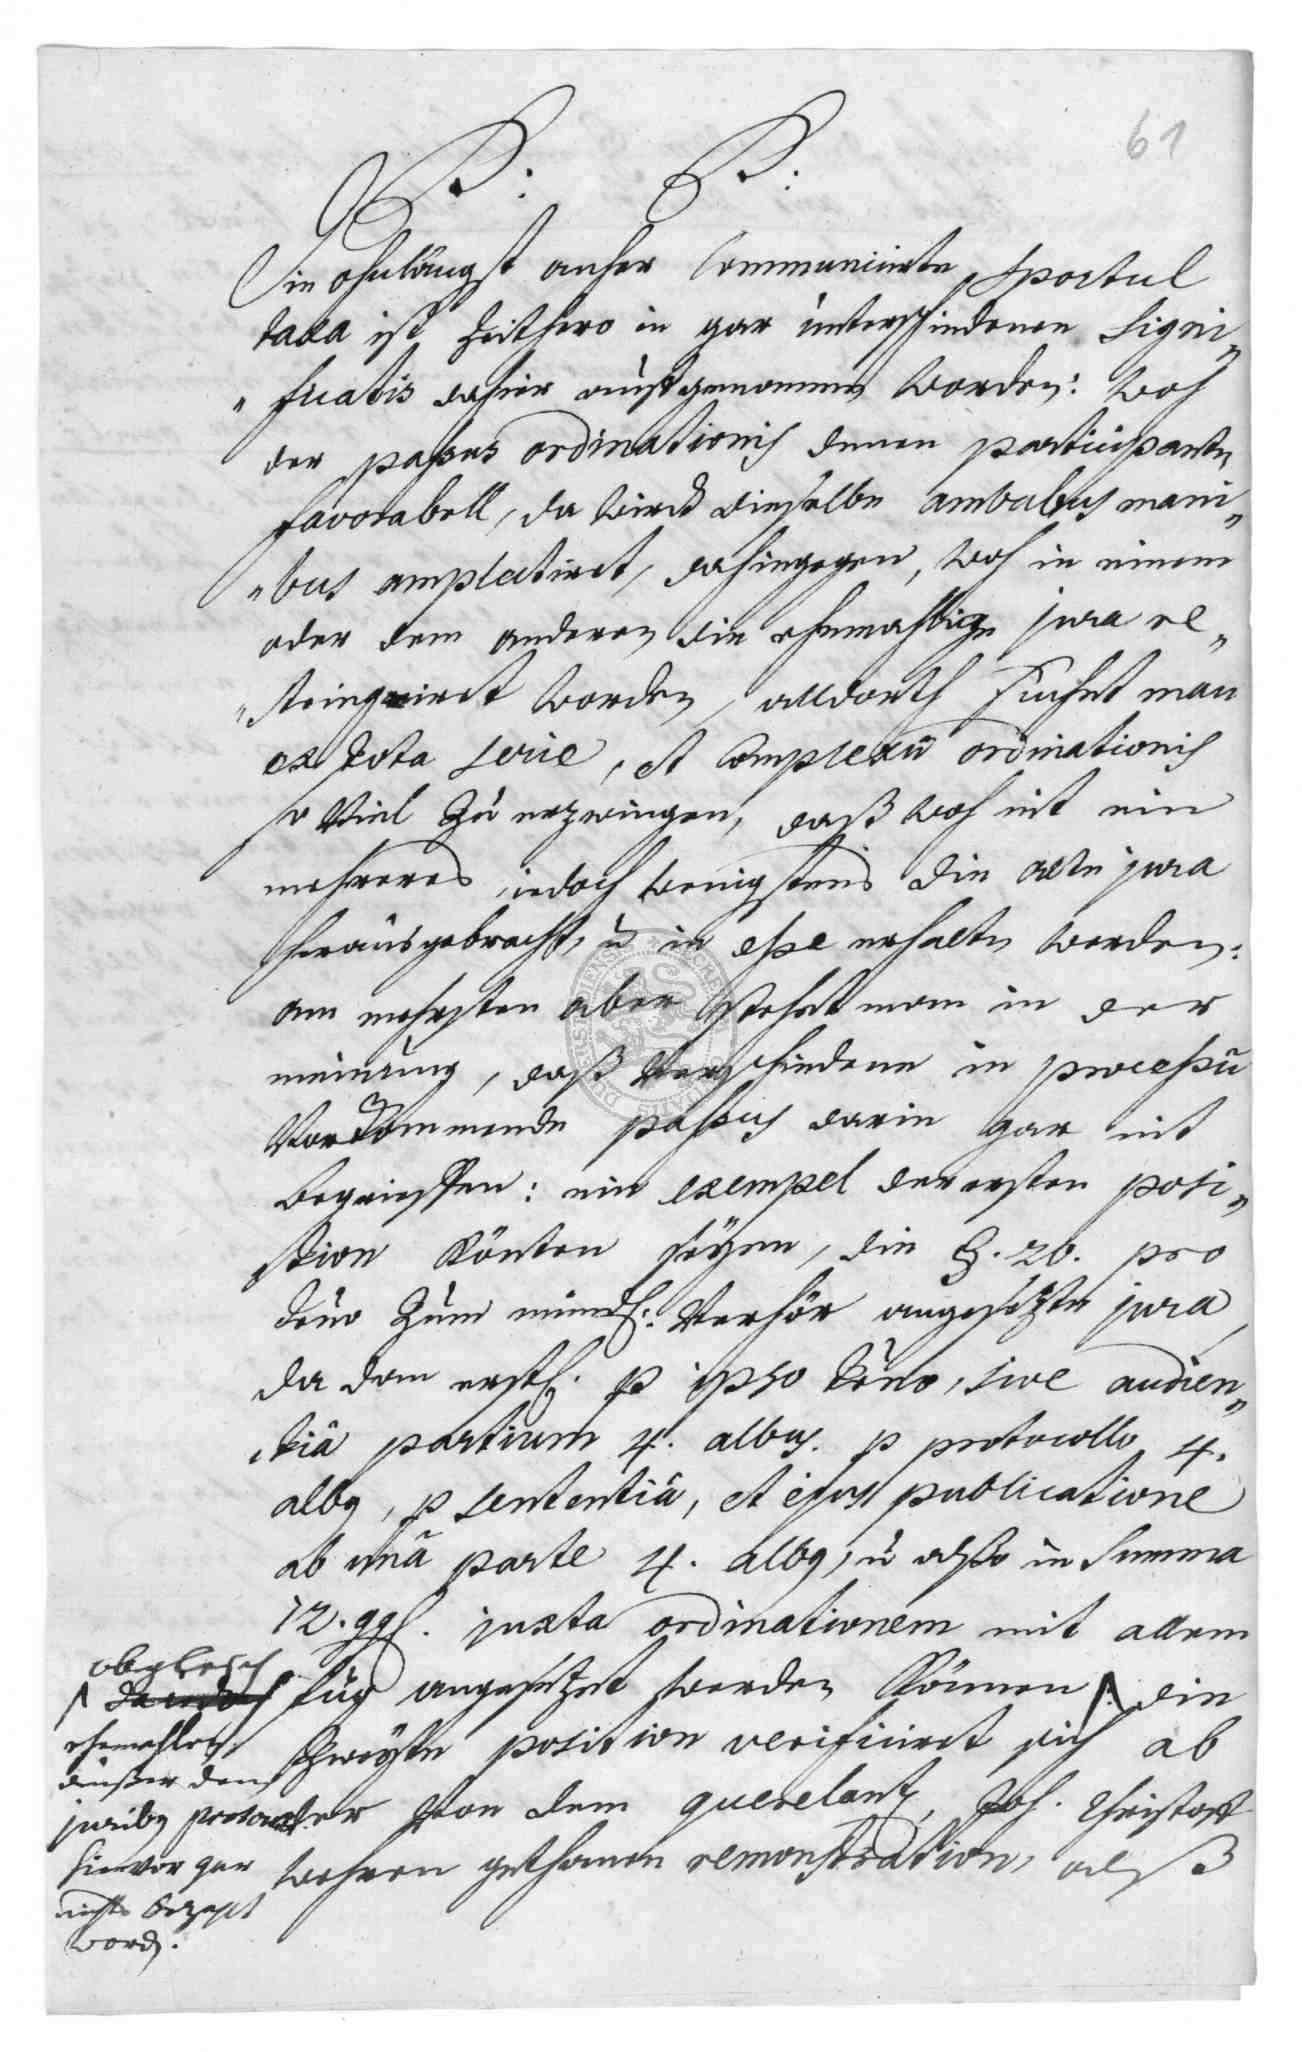 61
P: P:
Die ohnlängst anher Communicirte Sportul
taxa ist zeithero in gar unterschiedenen Signi„
„ficatis dahier aufgenommen worden: woh
der passus ordinationis denen participanten
favorabell, da wird dieselbe ambabus mani„
„bus amplectiret, dahingegen, woh in einem
oder dem anderen die ehemahlige jura re„
„stringuiret worden, alldorth suchet man
ex tota serie, et Complexu ordinationis
so Viel zu erzwingen, daß woh nit ein
mehreres, iedoch wenigstens die alte jura
herausgebracht, u in esse erhalten werden:
am mehrsten aber stehet man in der
meinung, daß Verschiedene in processu
Vorkommende passus darin gar nit
begrieffen: ein exempel der ersten posi„
tion könten seyen, die §. 20. pro
termo zum mündl: Verhör angesetzte jura,
da dan erstl. p ipso termo, sive audien„
tiâ partium 4. albus. p protocollo 4.
alb9, p sententiâ, et ejus publicatione
ab unâ parte 4. alb9, u also in Summa
12. ggl. juxta ordinationem mit allem
fug angesetzet werden können /: die
zweyte position verificiret sich ab
der von dem querelant, Joh. Christoff
wehren gethanen remonstration, alß
obgleich
ehemahlen
außer den
juriby protocolli
hievor gar
nichts bezahlt
word.